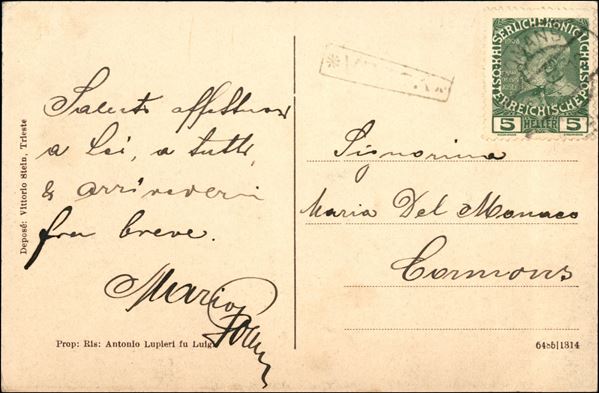 Saluti affettuosi
a Lei, a tutti
& arrivederci
fra breve.
Mario
Deposé: Vittorio Stein, Trieste
Prop: Ris: Antonio Lupieri fu Luigi
KAISERLICHE KÖNIGLICHE ÖSTERREICHISCHE
1908
5 HELLER 5
Signorina
Maria Del Monaco
Cormons